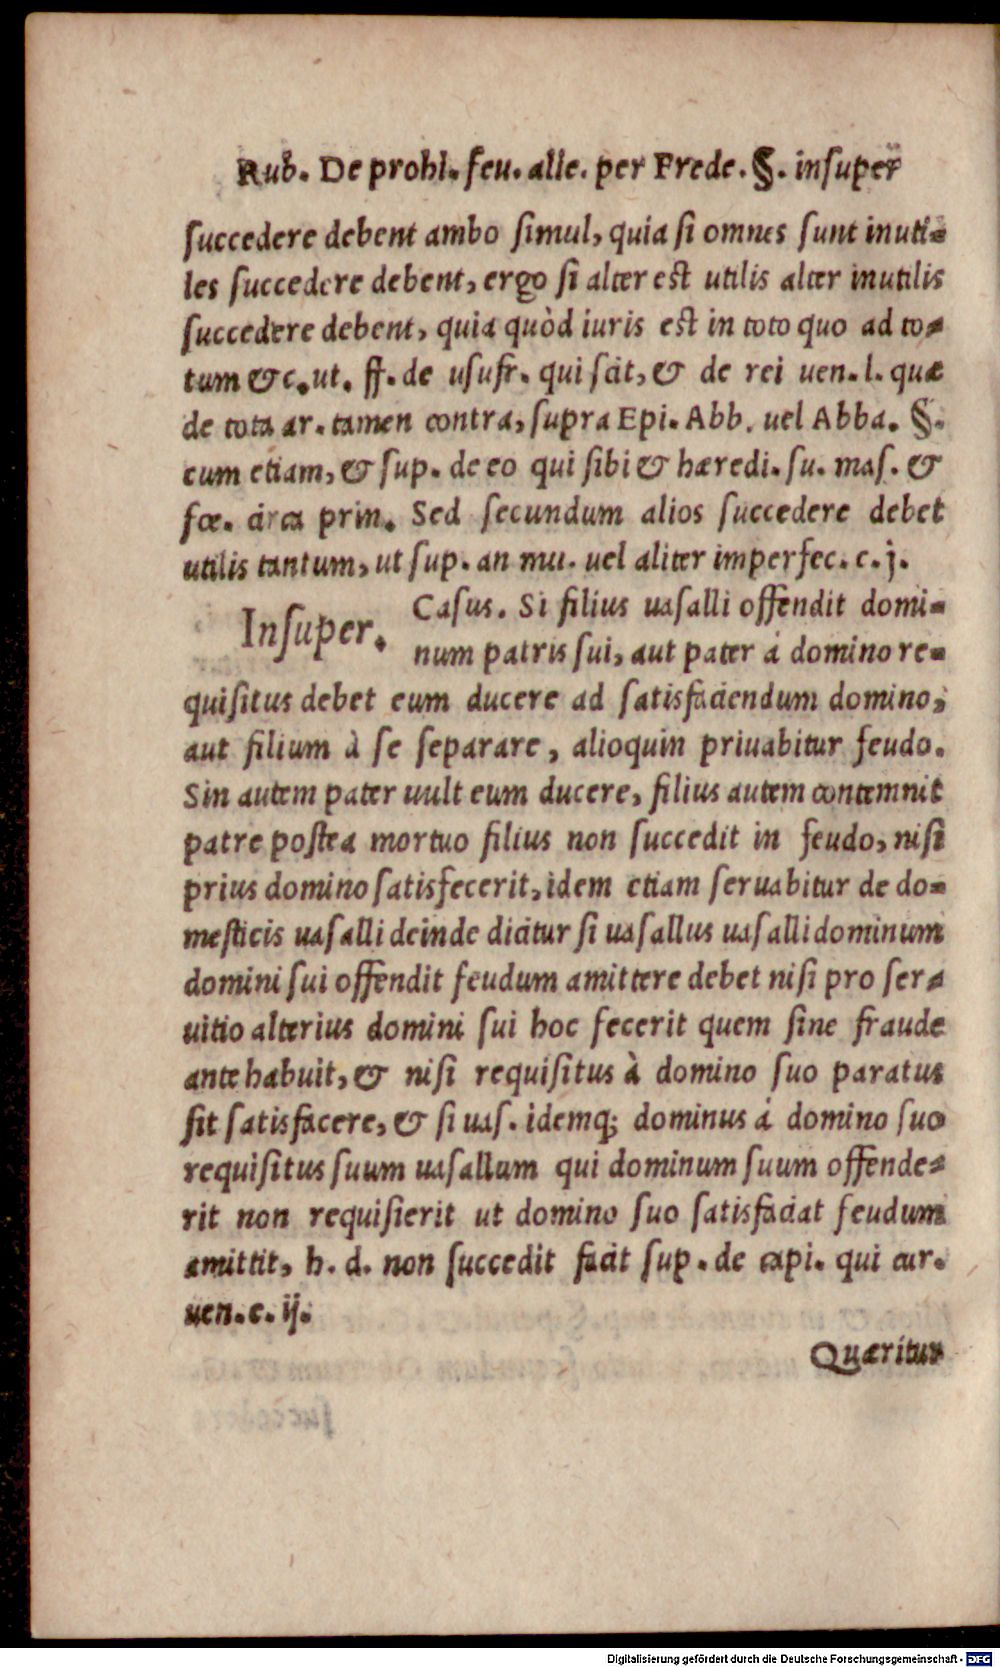 Rub. De prohl. feu. alle. per Frede. §. inſuper
ſuccedere debent ambo ſimul, quia ſi omnes ſunt inuti-
les ſuccedere debent, ergo ſi alter eſt utilis alter inutilis
ſuccedere debent, quia quòd iuris eſt in toto quo ad to-
tum &c. ut. ff. de uſufr. qui ſcit, & de rei uen. l. quæ
de tota ar. tamen contra, ſupra Epi. Abb. uel Abba. §.
cum etiam, & ſup. de eo qui ſibi & hæredi. ſu. maſ. &
fœ. circa prin. Sed ſecundum alios ſuccedere debet
utilis tantum, ut ſup. an mu. uel aliter imperfec. c. j.
Inſuper. Caſus. Si filius uaſalli offendit domi-
num patris ſui, aut pater á domino re-
quiſitus debet eum ducere ad ſatisfaciendum domino,
aut filium à ſe ſeparare, alioquin priuabitur feudo.
Sin autem pater uult eum ducere, filius autem contemnit
patre poſtea mortuo filius non ſuccedit in feudo, niſi
prius domino ſatisfecerit, idem etiam ſeruabitur de do-
meſticis uaſalli deinde dicitur ſi uaſallus uaſalli dominum
domini ſui offendit feudum amittere debet niſi pro ſer-
uitio alterius domini ſui hoc fecerit quem ſine fraude
ante habuit, & niſi requiſitus à domino ſuo paratus
ſit ſatisfacere, & ſi uaſ. idemq; dominus á domino ſuo
requiſitus ſuum uaſallum qui dominum ſuum offende-
rit non requiſierit ut domino ſuo ſatisfaciat feudum
amittit, h. d. non ſuccedit facit ſup. de capi. qui cur.
uen. c. ij.
Quæritur
Digitalisierung gefördert durch die Deutsche Forschungsgemeinschaft - DFG